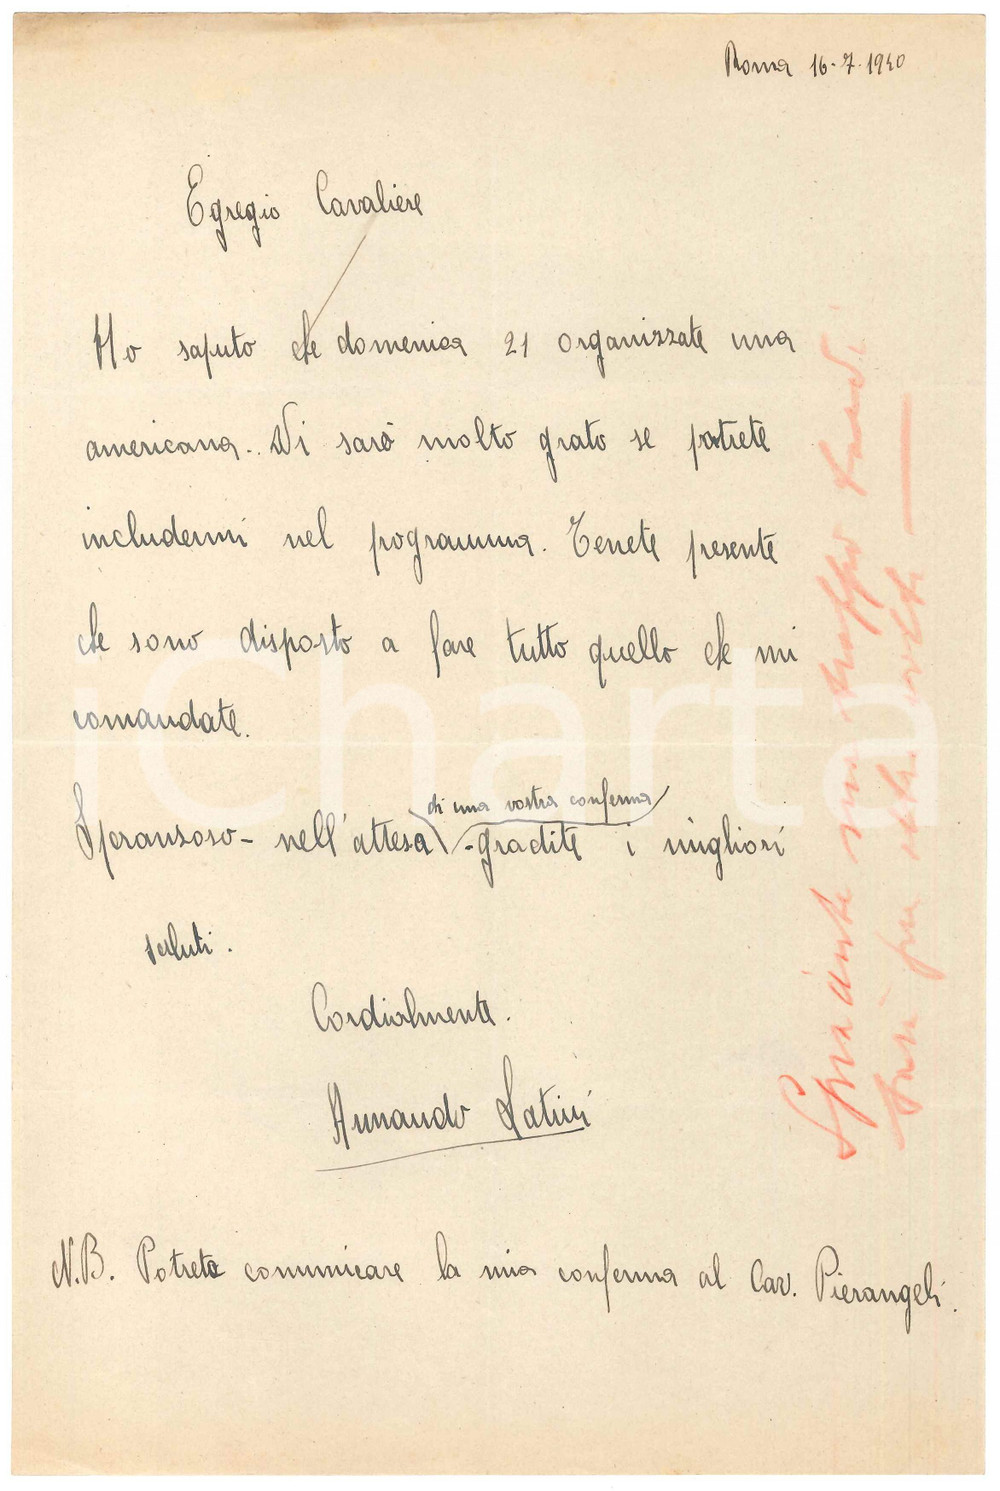 Roma 16-7-1940
Egregio Cavaliere
Ho saputo che domenica 21 organizzate una
americana. Vi sarò molto grato se potrete
includermi nel programma. Tenete presente
che sono disposto a fare tutto quello che mi
comandate.
Speranzoso - nell'attesa di una vostra conferma - gradite i migliori
saluti.
Cordialmente.
Armando Latini
N.B. Potrete comunicare la mia conferma al Cav. Pierangeli.
troppo tardi
Sarà per altra volta
iCharta